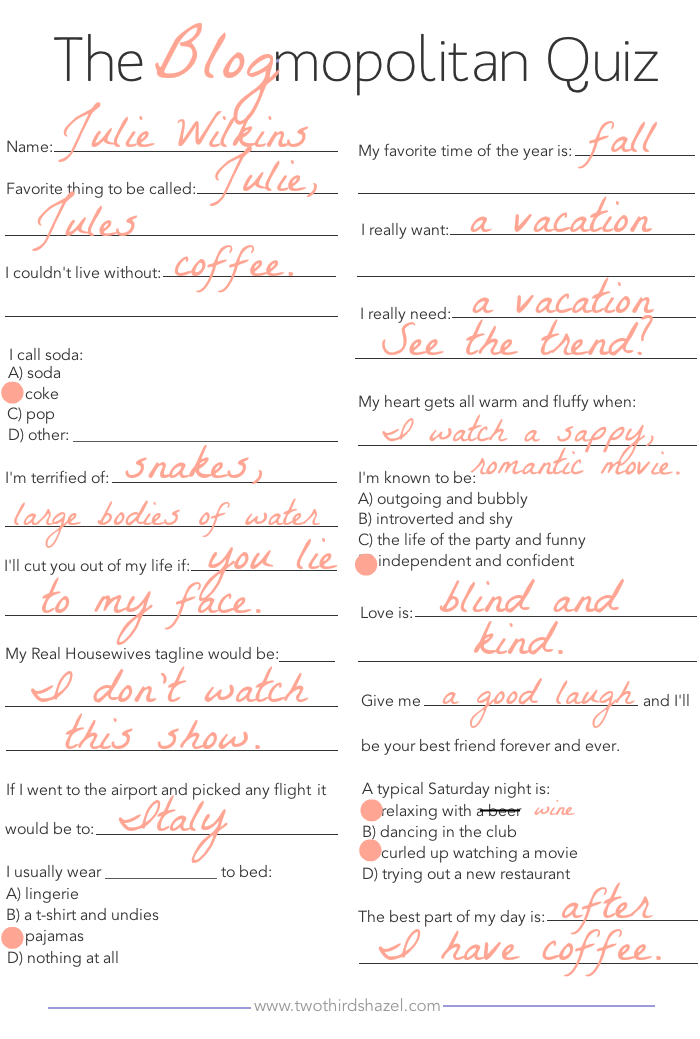 The Blogmopolitan Quiz
Name: Julie Wilkins
Favorite thing to be called: Julie,
Jules
I couldn't live without: coffee.
I call soda:
A) soda
coke
C) pop
D) other:
I'm terrified of: snakes,
large bodies of water
I'll cut you out of my life if: you lie
to my face.
My Real Housewives tagline would be:
I don't watch
this show.
If I went to the airport and picked any flight it
would be to: Italy
I usually wear to bed:
A) lingerie
B) a t-shirt and undies
pajamas
D) nothing at all
My favorite time of the year is: fall
I really want: a vacation
I really need: a vacation
See the trend?
My heart gets all warm and fluffy when:
I watch a sappy,
romantic movie.
I'm known to be:
A) outgoing and bubbly
B) introverted and shy
C) the life of the party and funny
independent and confident
Love is: blind and
kind.
Give me a good laugh and I'll
be your best friend forever and ever.
A typical Saturday night is:
relaxing with a beer wine
B) dancing in the club
curled up watching a movie
D) trying out a new restaurant
The best part of my day is: after
I have coffee.
www.twothirdshazel.com